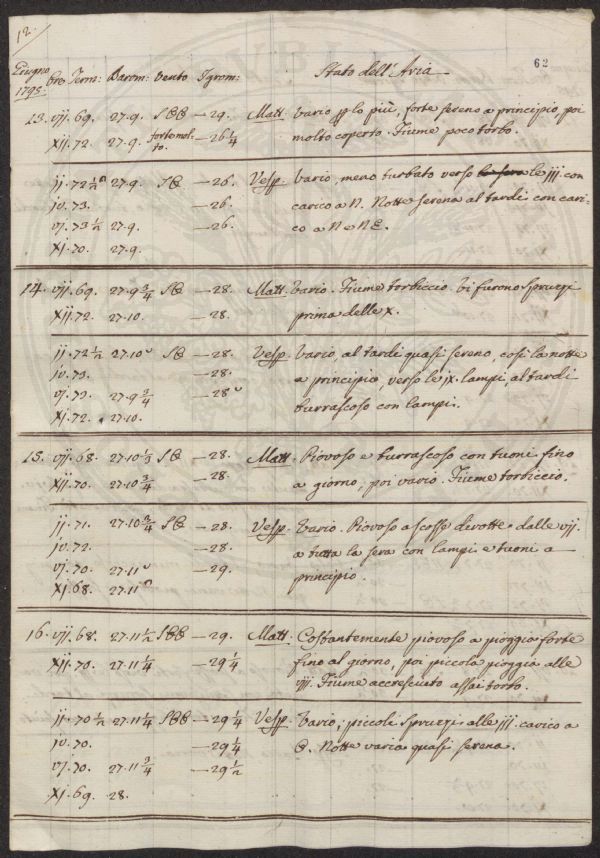 12.
62
Giugno 1795. Ore Term: Barom: Vento Igrom: Stato dell'Aria
13. vij. 69. 27.9. SEE —29. Matt. Vario p lo più, forte sereno a principio, poi
xij. 72. 27.9. forte mol- —26 1/4 molto coperto. Fiume poco torbo.
to.
ij. 72 1/2 27.9. SE —26. Vesp. Vario, meno turbato verso le iij. con
iv. 73. —26. carico a N. Notte serena al tardi con cari-
vj. 73 1/2 27.9. —26. co a N e NE.
xj. 70. 27.9.
14. vij. 69. 27.9 3/4 SE —28. Matt. Vario. Fiume torbiccio. Vi furono spruzzi
xij. 72. 27.10. —28. prima delle x.
ij. 72 1/2 27.10 SE —28. Vesp. Vario, al tardi quasi sereno, così la notte
iv. 73. —28. a principio, verso le ix. lampi, al tardi
vj. 73. 27.9 3/4 —28 burrascoso con lampi.
xj. 72. 27.10.
15. vij. 68. 27.10 1/2 SE —28. Matt. Piovoso e burrascoso con tuoni fino
xij. 70. 27.10 3/4 —28. a giorno, poi vario. Fiume torbiccio.
ij. 71. 27.10 3/4 SE —28. Vesp. Vario. Piovoso a scosse dirotte dalle vij.
iv. 72. —28. a tutta la sera con lampi e tuoni a
vj. 70. 27.11 —29. principio.
xj. 68. 27.11
16. vij. 68. 27.11 1/2 SEE —29. Matt. Costantemente piovoso a pioggia forte
xij. 70. 27.11 1/4 —29 1/4 fino al giorno, poi piccola pioggia alle
viij. Fiume accresciuto assai torbo.
ij. 70 1/2 27.11 1/4 SEE —29 1/4 Vesp. Vario; piccoli spruzzi alle iij. carico a
iv. 70. —29 1/4 E. Notte varia quasi serena.
vj. 70. 27.11 3/4 —29 1/2
xj. 69. 28.